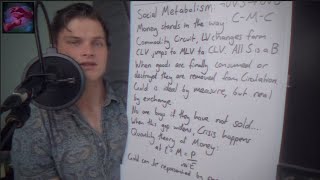 Social Metabolism:
Money stands in the way C-M-C
Commodity Circuit, LV changes form
CLV jumps to MLV to CLV. All S a a B
When goods are finally consumed or
destroyed they are removed from Circulation
Gold is ideal by measure, but real
by exchange
No one buys if they have not sold...
When this gap widens, Crisis happens
Quantity theory of Money:
Gold could be represented by